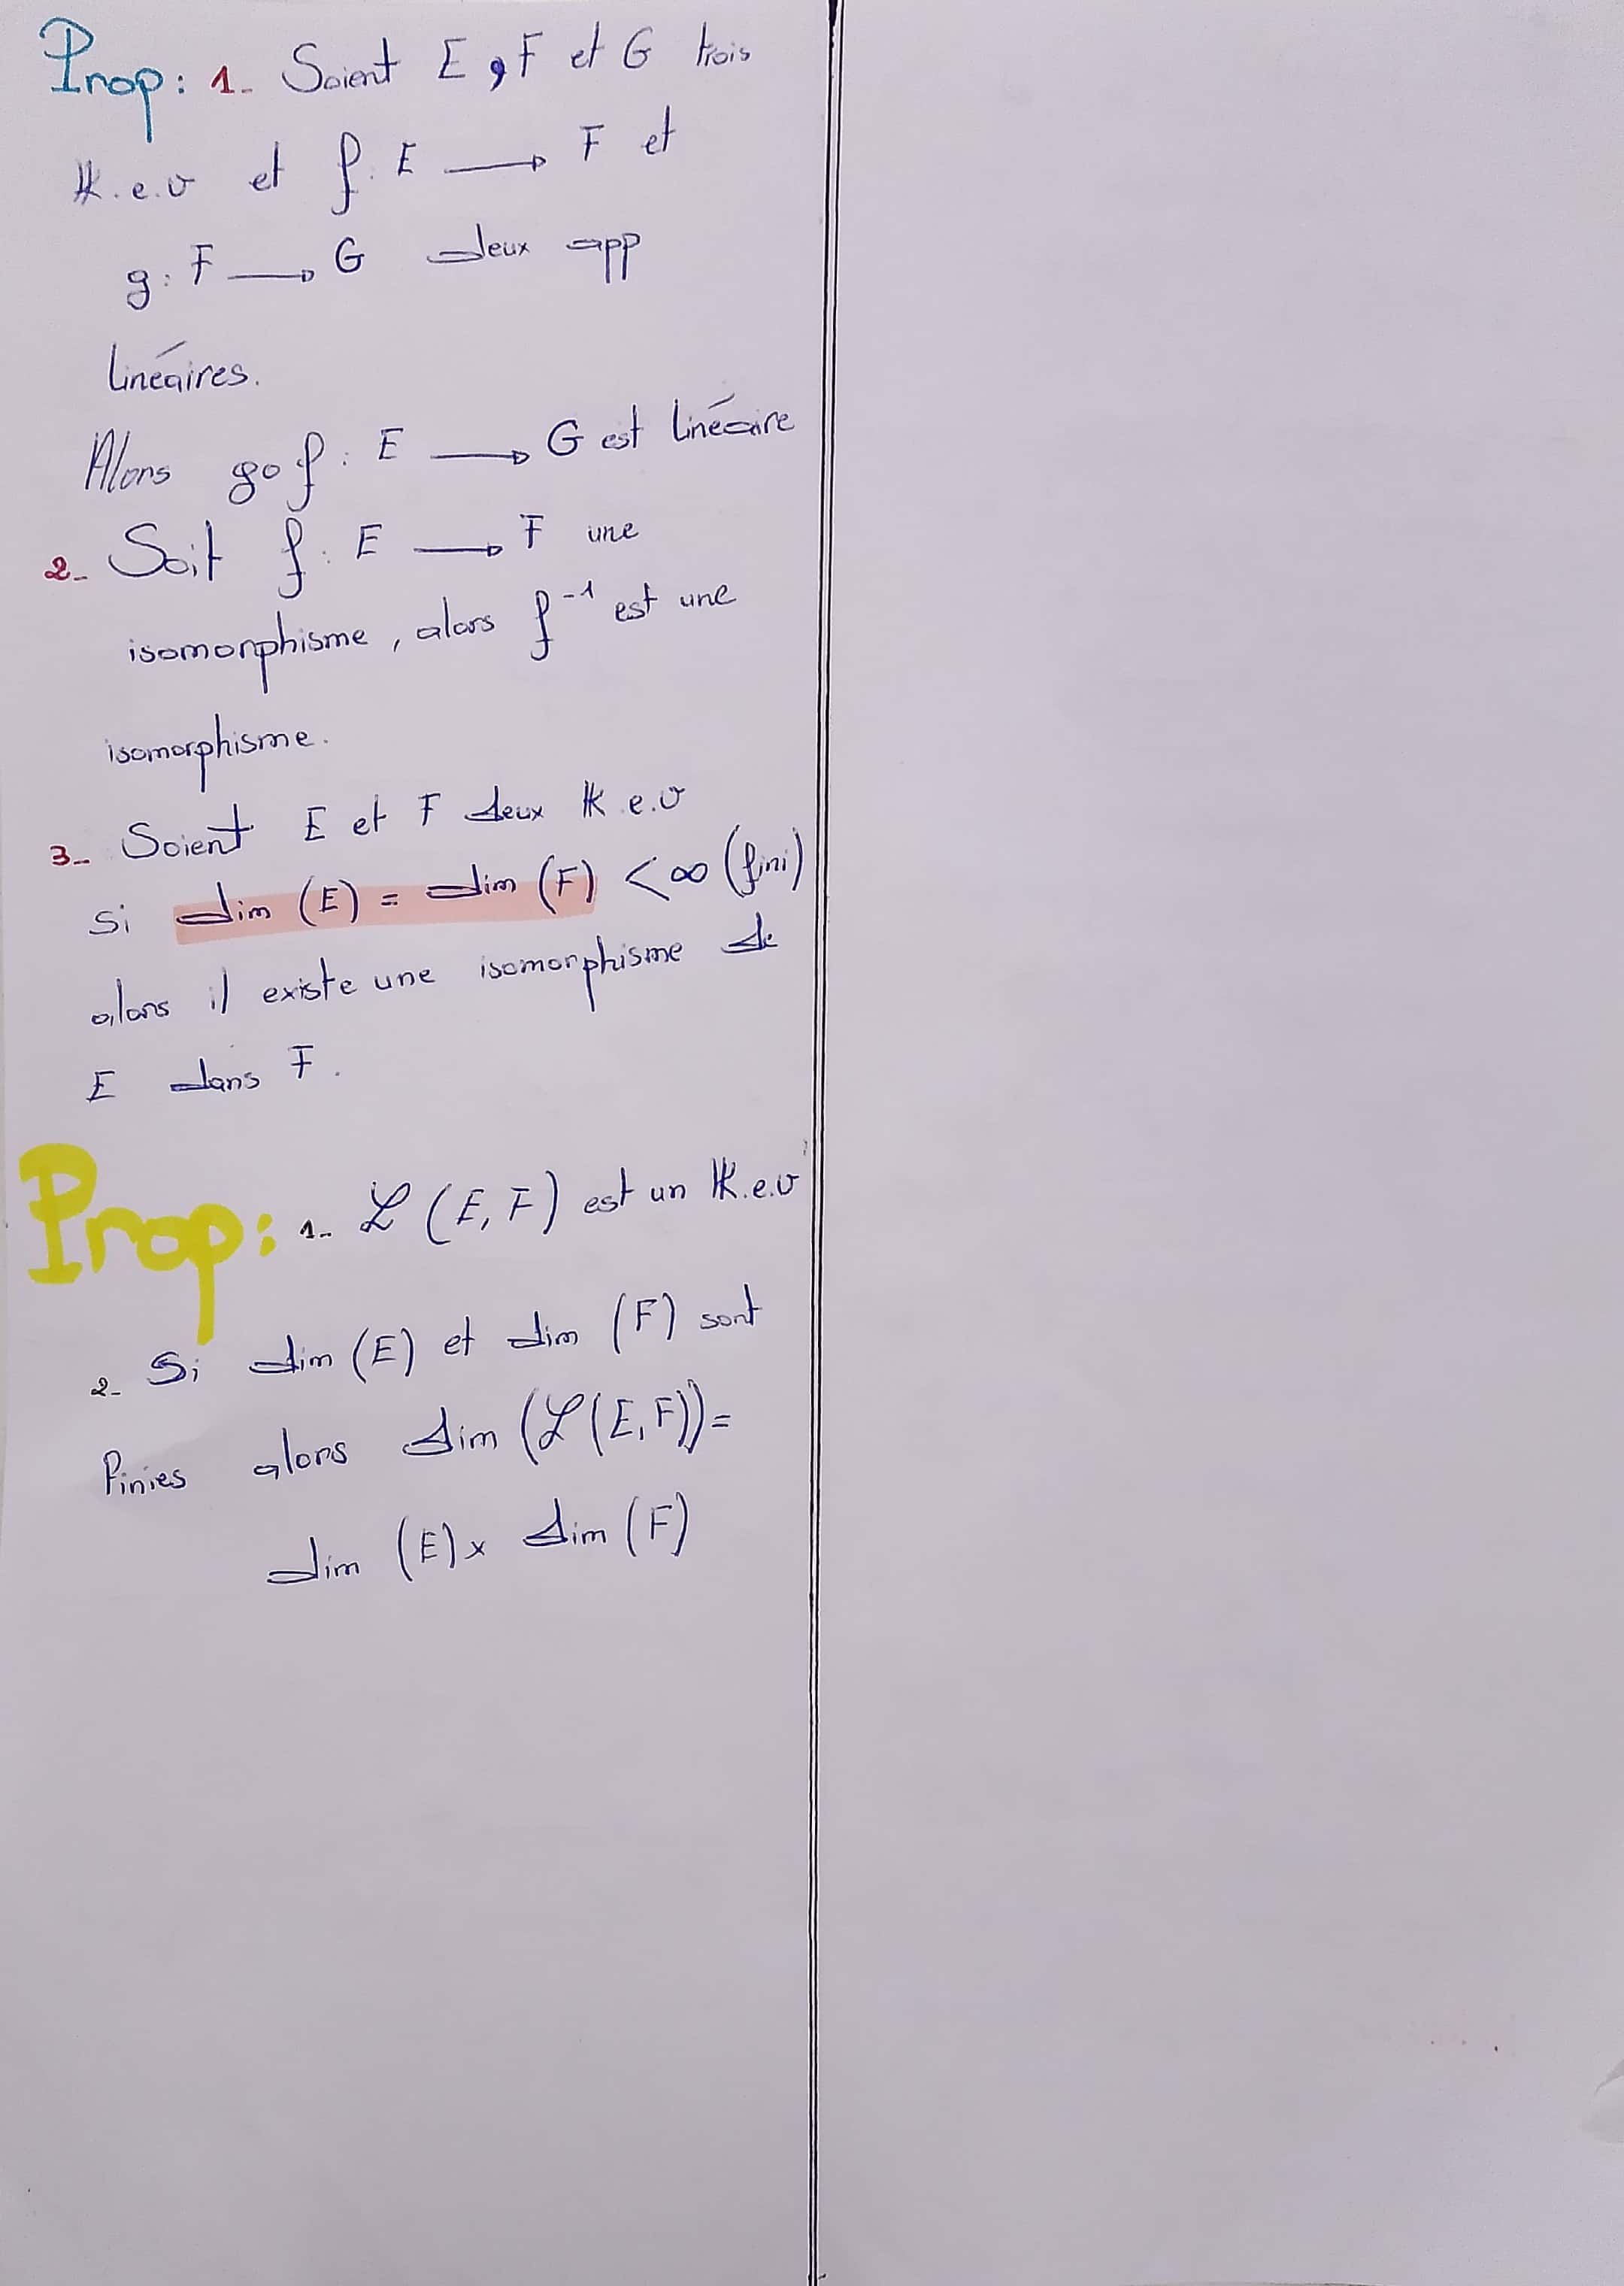 Prop: 1- Soient E, F et G trois
𝕂.e.v et f: E → F et
g: F → G deux app
linéaires.
Alors gof: E → G est linéaire
2- Soit f: E → F une
isomorphisme, alors f⁻¹ est une
isomorphisme.
3- Soient E et F deux 𝕂.e.v
Si dim (E) = dim (F) < ∞ (fini)
alors il existe une isomorphisme de
E dans F.
Prop: 1- ℒ (E, F) est un 𝕂.e.v
2- Si dim (E) et dim (F) sont
finies alors dim (ℒ(E, F)) =
dim (E) × dim (F)